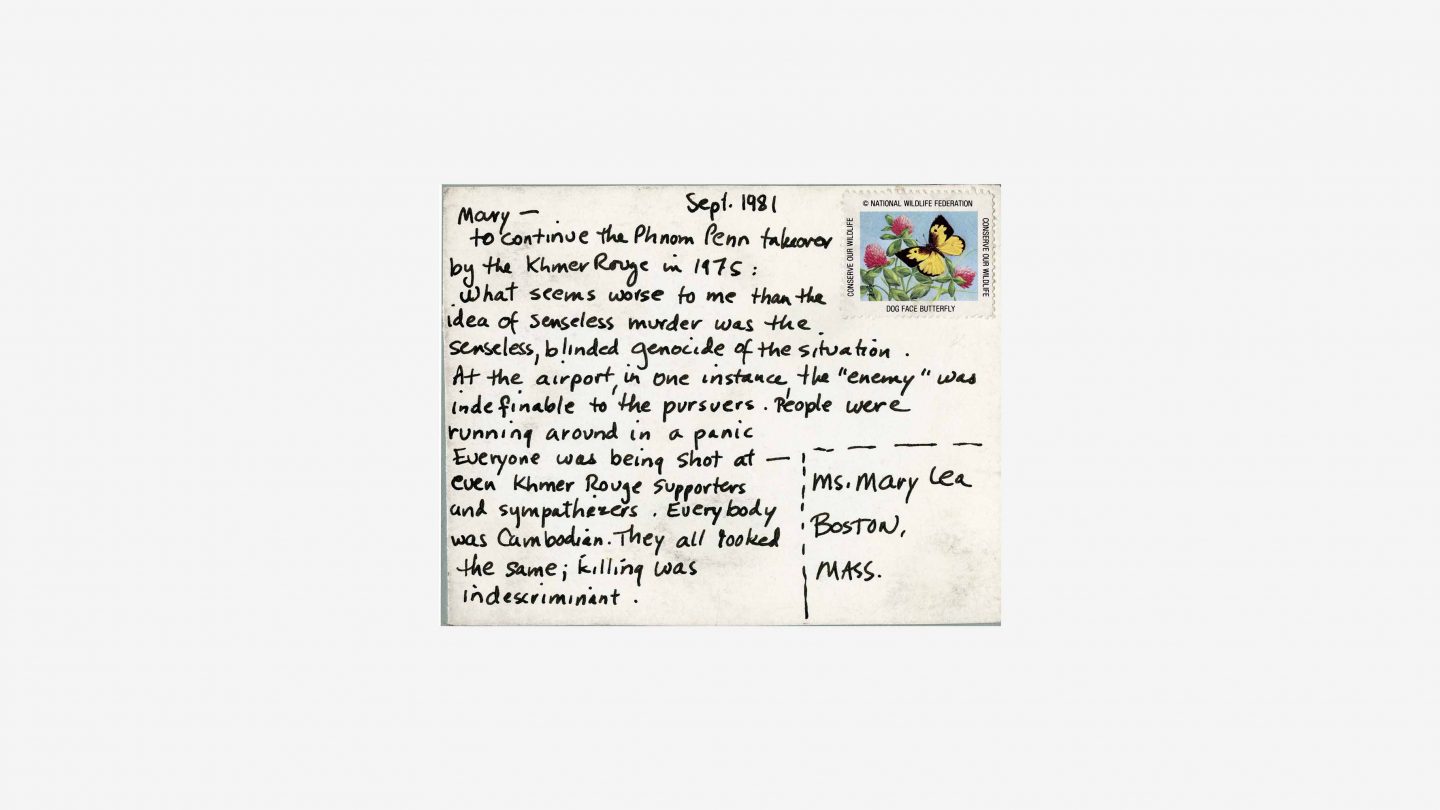 Sept. 1981
Mary —
to continue the Phnom Penn takeover
by the Khmer Rouge in 1975 :
What seems worse to me than the
idea of senseless murder was the
senseless, blinded genocide of the situation .
At the airport, in one instance, the "enemy" was
indefinable to the pursuers . People were
running around in a panic
Everyone was being shot at —
even Khmer Rouge supporters
and sympathezers . Everybody
was Cambodian. They all looked
the same; killing was
indescriminant .
© NATIONAL WILDLIFE FEDERATION
CONSERVE OUR WILDLIFE
CONSERVE OUR WILDLIFE
DOG FACE BUTTERFLY
Ms. Mary Lea
BOSTON,
MASS.